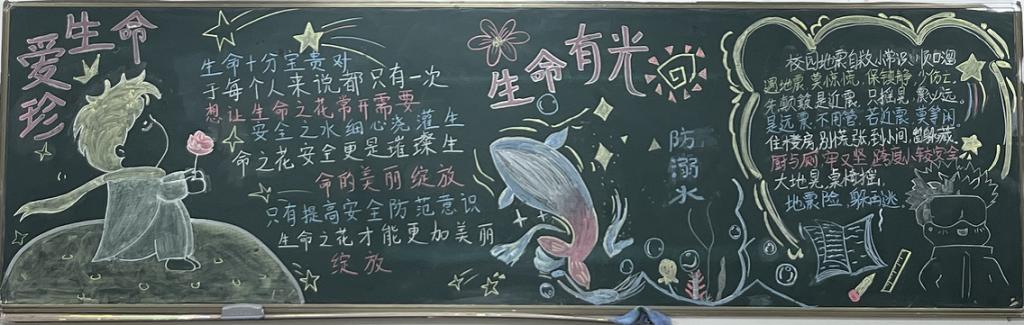 珍爱生命
生命十分宝贵对
于每个人来说都只有一次
想让生命之花常开需要
安全之水细心浇灌生
命之花安全更是璀璨生
命的美丽绽放
只有提高安全防范意识
生命之花才能更加美丽
绽放
生命有光
防溺水
校园地震自救小常识顺口溜
遇地震莫惊慌 保镇静少伤亡
先颠较是近震 只摇晃震
是远震 不用管 若近震
住楼房 别慌张 到小间 躲藏
厨与厕 牢又坚 跨度小较安全
大地晃桌椅摇
地震险